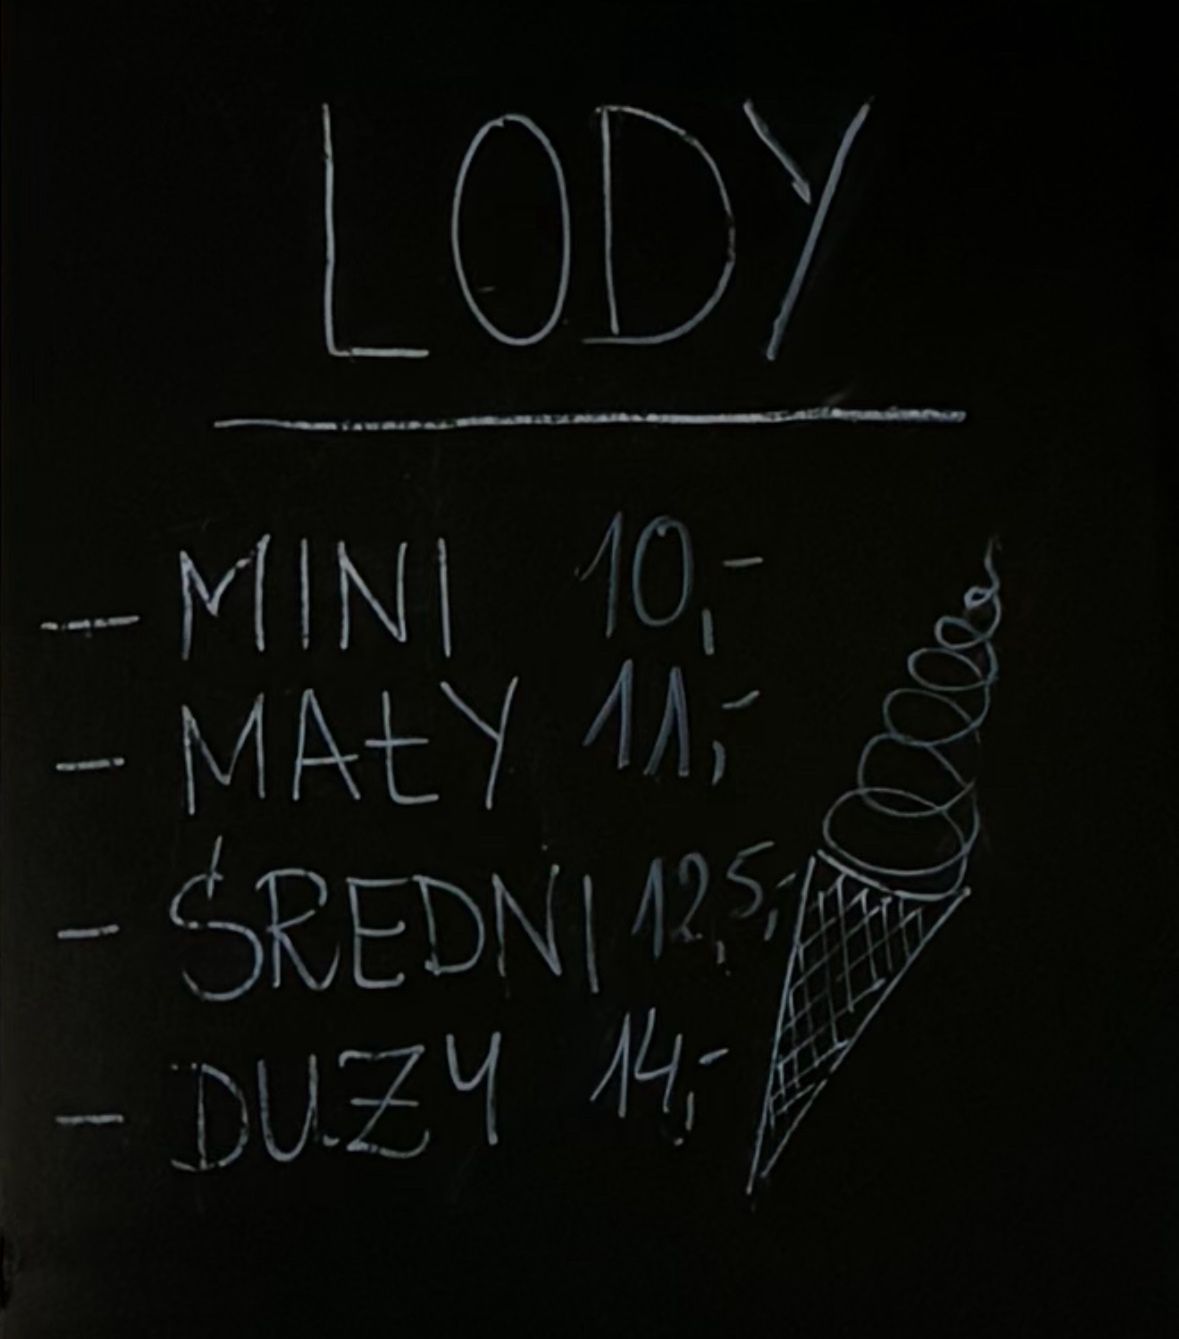 LODY
- MINI 10,-
- MAŁY 11,-
- ŚREDNI 12,5,-
- DUŻY 14,-